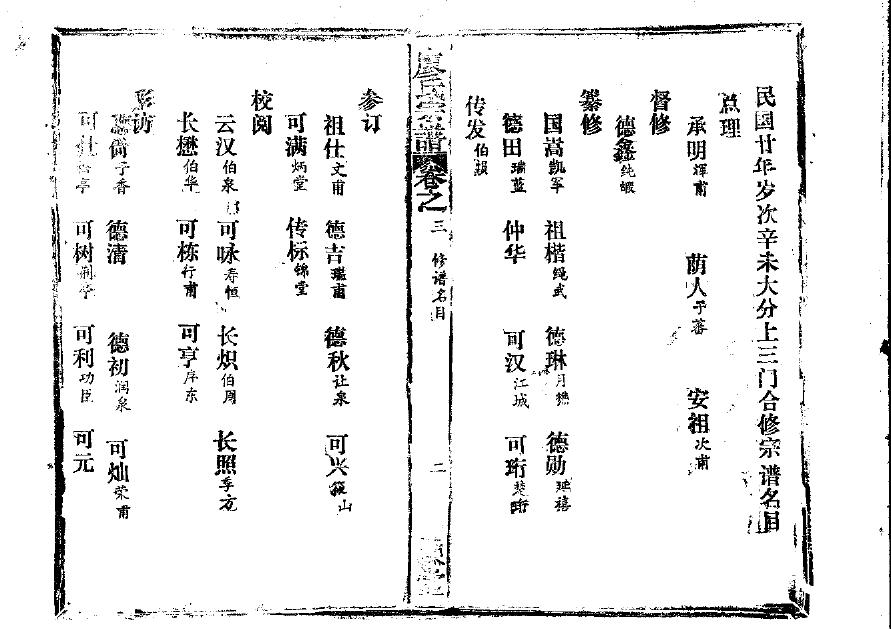 民国廿年岁次辛未大分上三门合修宗谱名目
总理
承明辉甫 荫人于蕃 安祖次甫
督修
德鑫纯嘏
纂修
国嵩凯军 祖楷绳武 德琳月樵 德勋
德田瑞蓝 仲华 可汉江城 可珩楚珩
传发伯颖
廖氏宗谱 卷之 三 修谱名目 二
参订
祖仕文甫 德吉瑞甫 德秋让泉 可兴筱山
可满炳堂 传标锦堂
校阅
云汉伯泉 可咏寿恒 长炽伯周 长照季方
长懋伯华 可栋行甫 可亨序东
采访
子香 德清 德初润泉 可灿荣甫
可树荆亭 可利功臣 可元